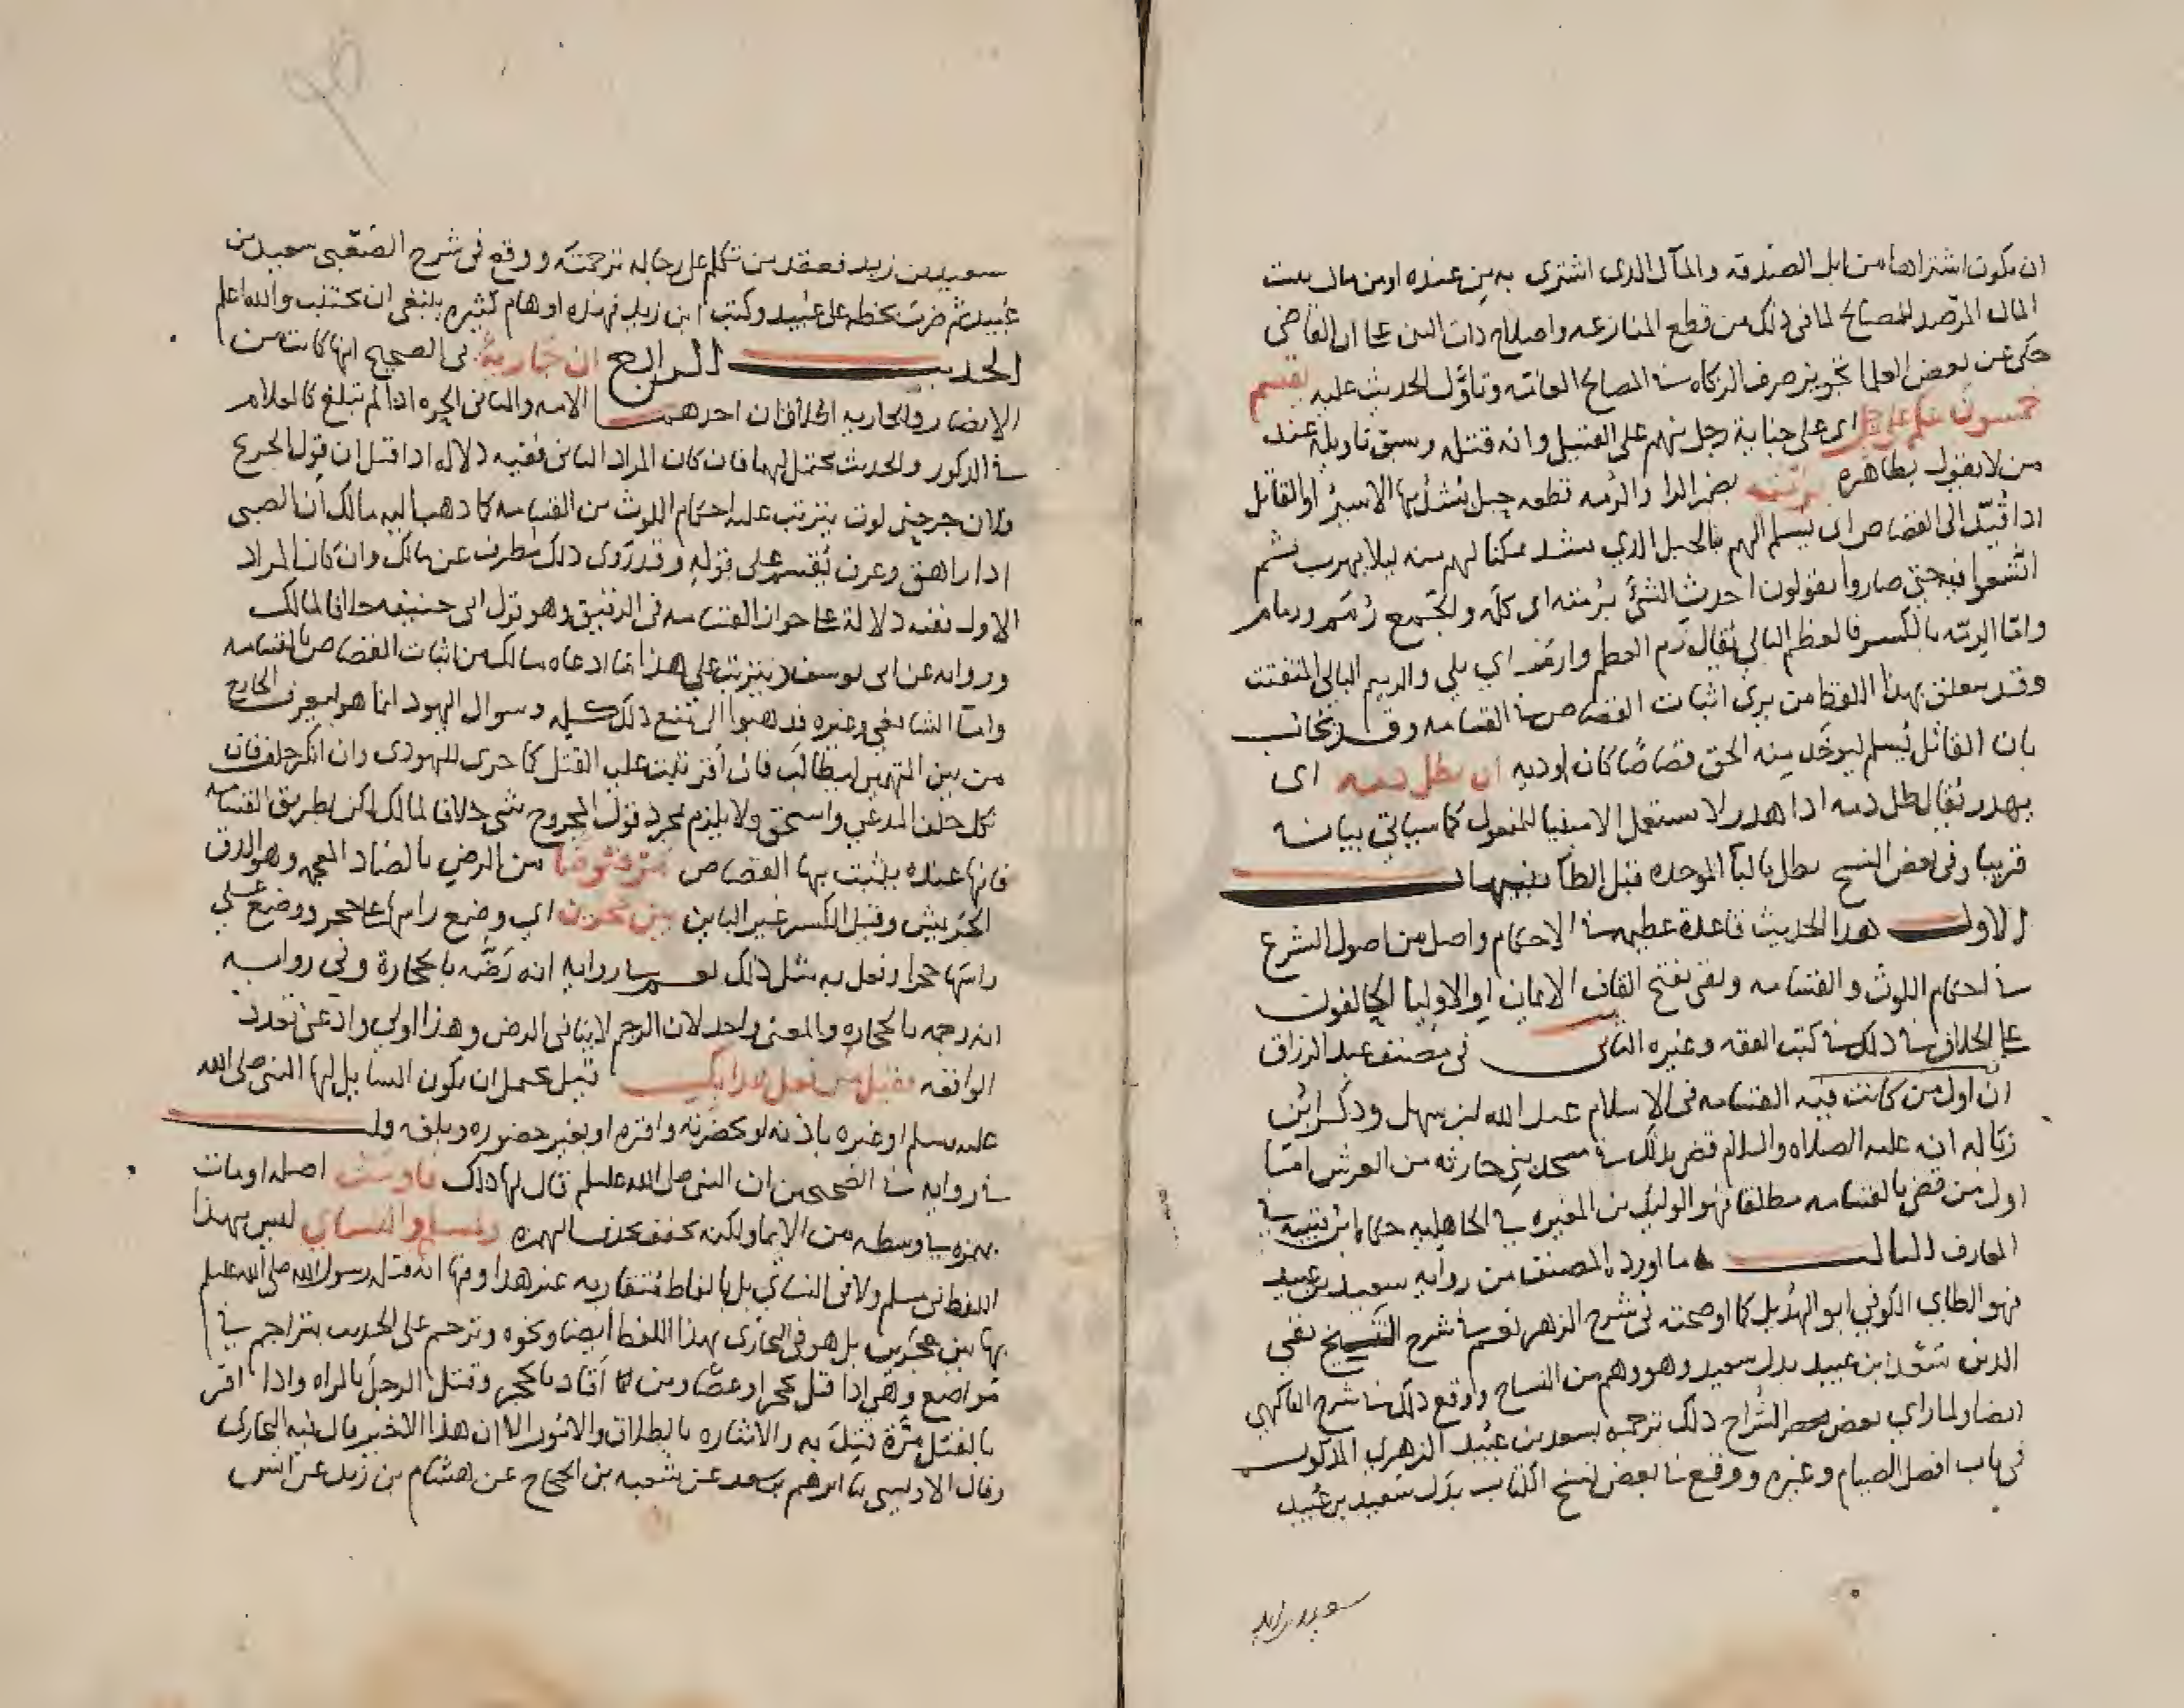 ان يكون اشتراها من ابل الصدقه والمال الذي اشترى به من عنده او من مال بيت
المال المرصد للمصالح لما في ذلك من قطع المنازعه واصلاح ذات البين على ان القاضي
حكى عن بعض العلما تجويز صرف الزكاه في المصالح العامة وتأول الحديث عليه يقسم
خمسون منكم على رجل اى على جناية رجل منهم على القتيل وانه قتله وسبق تاويله عند
من لا يقول بظاهره برمته بضم الرا والرمه قطعه حبل يشد بها الاسير او القاتل
اذا قيد الى القصاص اى يسلم اليهم بالحبل الذي شد ممكنا لهم منه ليلا يهرب ثم
اتسعوا فيه حتى صاروا يقولون اخذت الشئ برمته اى كله والجمع رمم ورمام
واما الرمه بالكسر فالعظم البالي يقال رم العظم وارم اي بلي والرميم البالي المتفتت
وقد يعلق بهذا اللفظ من يرى اثبات القصاص في القسامه وقد يجاب
بان القاتل يسلم ليوخذ منه الحق قصاصا كان او ديه ان يطل دمه اى
يهدر يقال طل دمه اذا هدر لا يستعمل الا مبنيا للمفعول كما سياتي بيانه
قريبا وفي بعض النسخ بطل بالبا الموحده قبل الطا تنبيهات
الاول هذا الحديث قاعدة عظيمه في الاحكام واصل من اصول الشرع
في احكام اللوث والقسامه وهي بفتح القاف الايمان او الاوليا الحالفون
على الخلاف في ذلك في كتب الفقه وغيره الثاني في مصنف عبد الرزاق
ان اول من كانت فيه القسامه في الاسلام عبد الله بن سهل وذكر ابن
زباله انه عليه الصلاه والسلام قضى بذلك في مسجد بني حارثه من امتا
اول من قضى بالقسامه مطلقا فهو الوليد بن المغيره في الجاهليه حكاه ابن قتيبه في
المعارف الثالث ما اورده المصنف من روايه سعيد بن عبيد
فهو الطاي الكوفي ابو الهذيل كما اوضحته في شرح الزهر نعم في شرح الشيخ تقي
الدين سعد ابن عبيد بدل سعيد وهو وهم من النساخ ووقع ذلك في شرح الفاكهي
ايضا ولما راي بعض الشراح ذلك ترجمه بسعد بن عبيد الزهري المذكور
في باب افضل الصيام وغيره ووقع في بعض نسخ الكتاب بدل سعيد بن عبيد
سعيد بن زيد
سعيد بن زيد فعقد من تكلم على رجاله ترجمته ووقع في شرح الصعبي سعيد بن
عبيد ثم ضرب بخطه على عبيد وكتب ابن زيد فهذه اوهام كثيره ينبغي ان تجتنب والله اعلم
الحديث الرابع ان جارية في الصحيح انها كانت من
الانصار والجاريه اطلاقان احدهما الامه والثاني الحره اذا لم تبلغ كالغلام
في الذكور والحديث يحتملهما فان كان المراد الثاني ففيه دلاله اذا قبل ان قول الجريح
فلان جرحني لوث يترتب عليه احكام اللوث من القسامه كما ذهب اليه مالك ان الصبي
اذا راهق وعرف يقسم على قوله وقد روى ذلك مطرف عن مالك وان كان المراد
الاول ففيه دلالة على جواز القسامه في الرقيق وهو قول ابي حنيفه خلافا لمالك
وروايه عن ابي يوسف ويترتب على هذا ما ادعاه مالك من اثبات القصاص بالقسامه
واما الشافعي وغيره فذهبوا الى منع ذلك كله وسوال اليهود انما هو ليعرف الجارح
من بين المتهمين ليطالب فان اقر ثبت عليه القتل كما جرى لليهودى وان انكر حلف فان
نكل حلف المدعي واستحق ولا يلزم بمجرد قول المجروح شي خلافا لمالك لكن بطريق القسامه
فانها عنده يثبت بها القصاص مرضوضا من الرض بالضاد المعجمه وهو الدق
الجريش وقيل الكسر غير الباين بين حجرين اي وضع راسها على حجر ووضع على
راسها حجرا وفعل به مثل ذلك نعم في روايه انه رضه بالحجارة وفي روايه
انه رجمه بالحجاره والمعنى واحد لان الرجم لا ينافي الرض وهذا اولى وادعى تعدد
الواقعه فقيل من فعل هذا بك قيل يحتمل ان يكون السايل لها النبي صلى الله
عليه وسلم او غيره باذنه او بحضرته واقره او بغير حضوره وبلغه ولـ
في روايه في الصحيحين ان النبي صلى الله عليه وسلم قال لها ذلك فاومت اصله اومات
بهمزه في وسطه من الايما ولكنه خفف بحذف الهمزه ولمسلم والنساي ليس بهذا
اللفظ في مسلم ولا في النساي بل بالفاظ متقاربه عند هذا وفيها انه قتله رسول الله صلى الله عليه وسلم
بها بين حجرين بل هو في البخاري بهذا اللفظ ايضا ونحوه وترجم على الحديث بتراجم في
مواضع وهي اذا قتل بحجر او عصا ومن اقاد بالحجر وقتل الرجل بالمراه واذا اقر
بالقتل مرة قتل به والاشاره بالطلاق والامور الا ان هذا الاخير قال فيه البخاري
وقال الاويسي نا ابرهيم بن سعد عن شعبه بن الحجاج عن هشام بن زيد عن انس